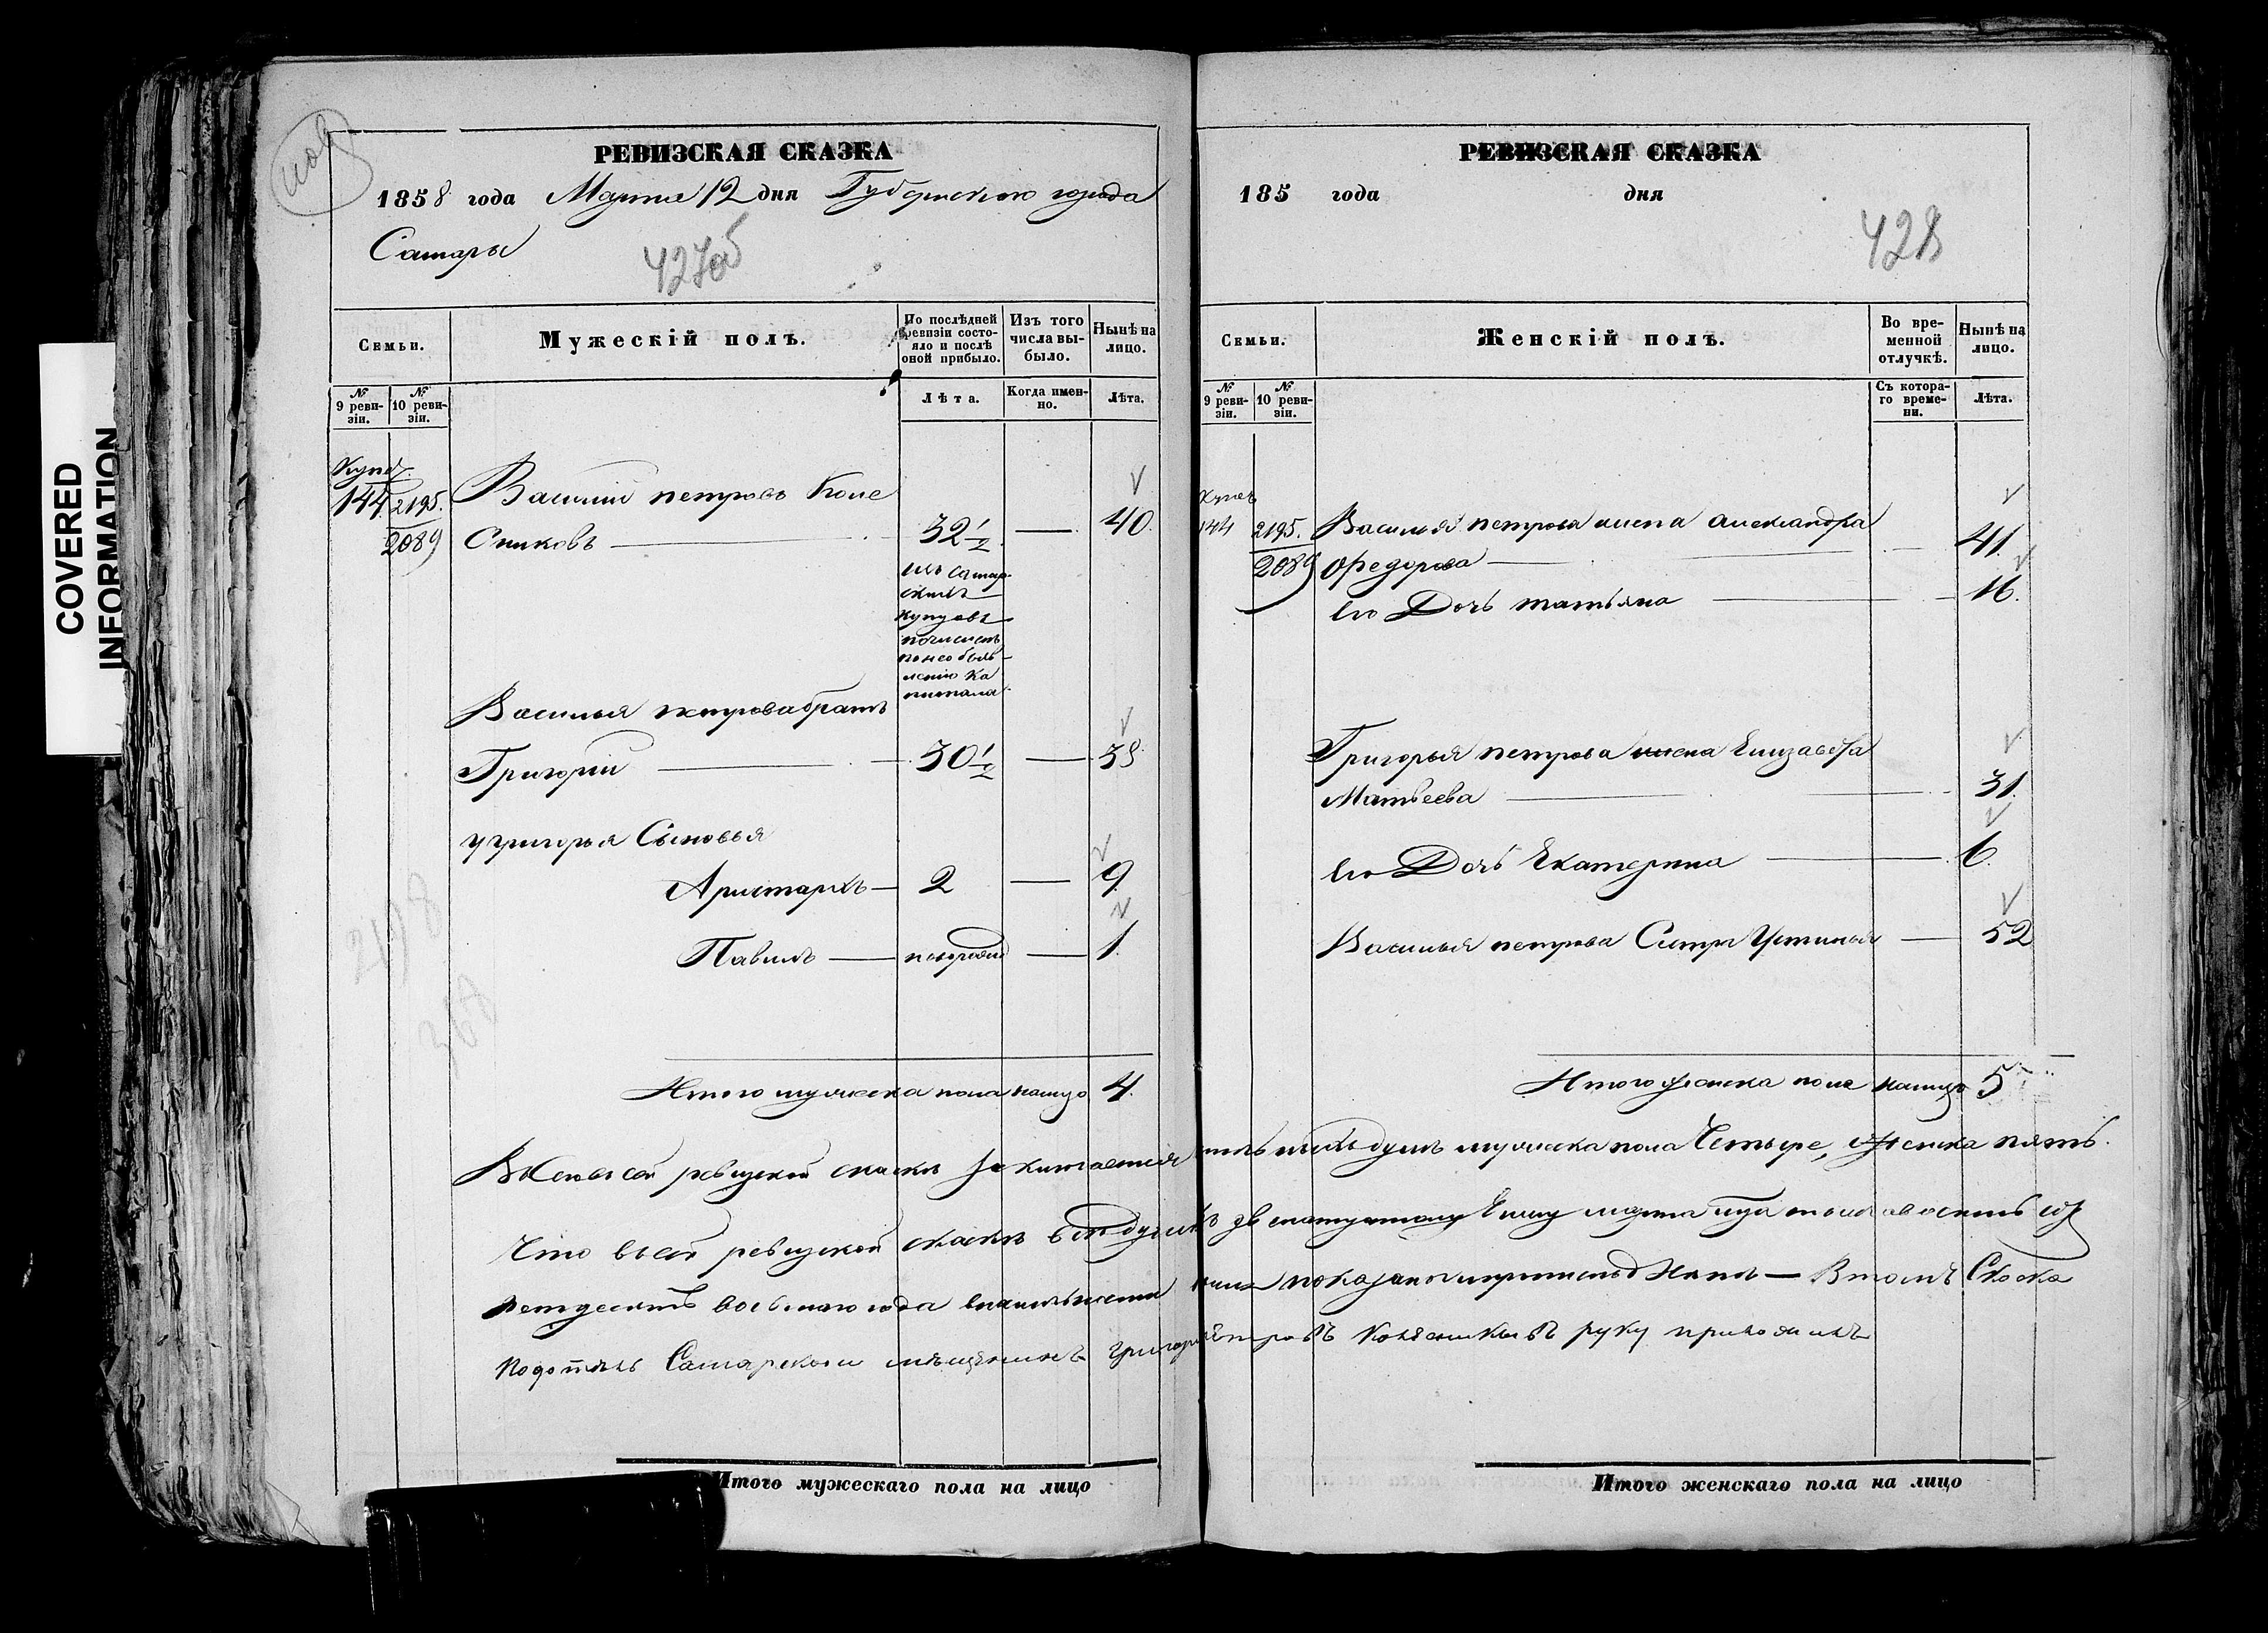 COVERED
INFORMATION
РЕВИЗСКАЯ СКАЗКА
1858 года Марта 12 дня Губернского города
Самары
427об
Семьи.
Мужескій полъ.
По послѣдней ревизіи состояло и послѣ оной прибыло.
Изъ того числа выбыло.
Нынѣ на лицо.
№ 9 ревизіи.
№ 10 ревизіи.
Лѣта.
Когда именно.
Лѣта.
Купец.
144 2195. Василий петровъ Коле
2089 Сниковъ — 32 1/2 — 40.
изъ Самар
скихъ
купцовъ
по необъяв
лению ка
питала
Василья петрова братъ
Григорий — 30 1/2 — 38
у григорья Сыновья
Аристархъ — 2 — 9
Павилъ — — 1.
Итого мужеска пола налицо 4.
РЕВИЗСКАЯ СКАЗКА
185 года дня
428
Семьи.
Женскій полъ.
Во временной отлучкѣ.
Нынѣ на лицо.
№ 9 ревизіи.
№ 10 ревизіи.
Съ котораго времени.
Лѣта.
Купец
144 2195. Василья петрова жена александра
2089 Федорова — 41.
Его Дочь татьяна — 16.
Григорья петрова жена Елизавета
Матвеева — 31.
Его Дочь Екатерина — 6.
Василья петрова Сестра Устинья — 52
Итого женска пола налицо 5
ревизской сказке заключается душъ мужеска пола Четыре, женска пять.
Что в сей ревизской сказке марта
восьмого года показано — В томъ Скаска
Самарской мещенинъ григорей петровъ руку приложилъ
Итого мужескаго пола на лицо
Итого женскаго пола на лицо